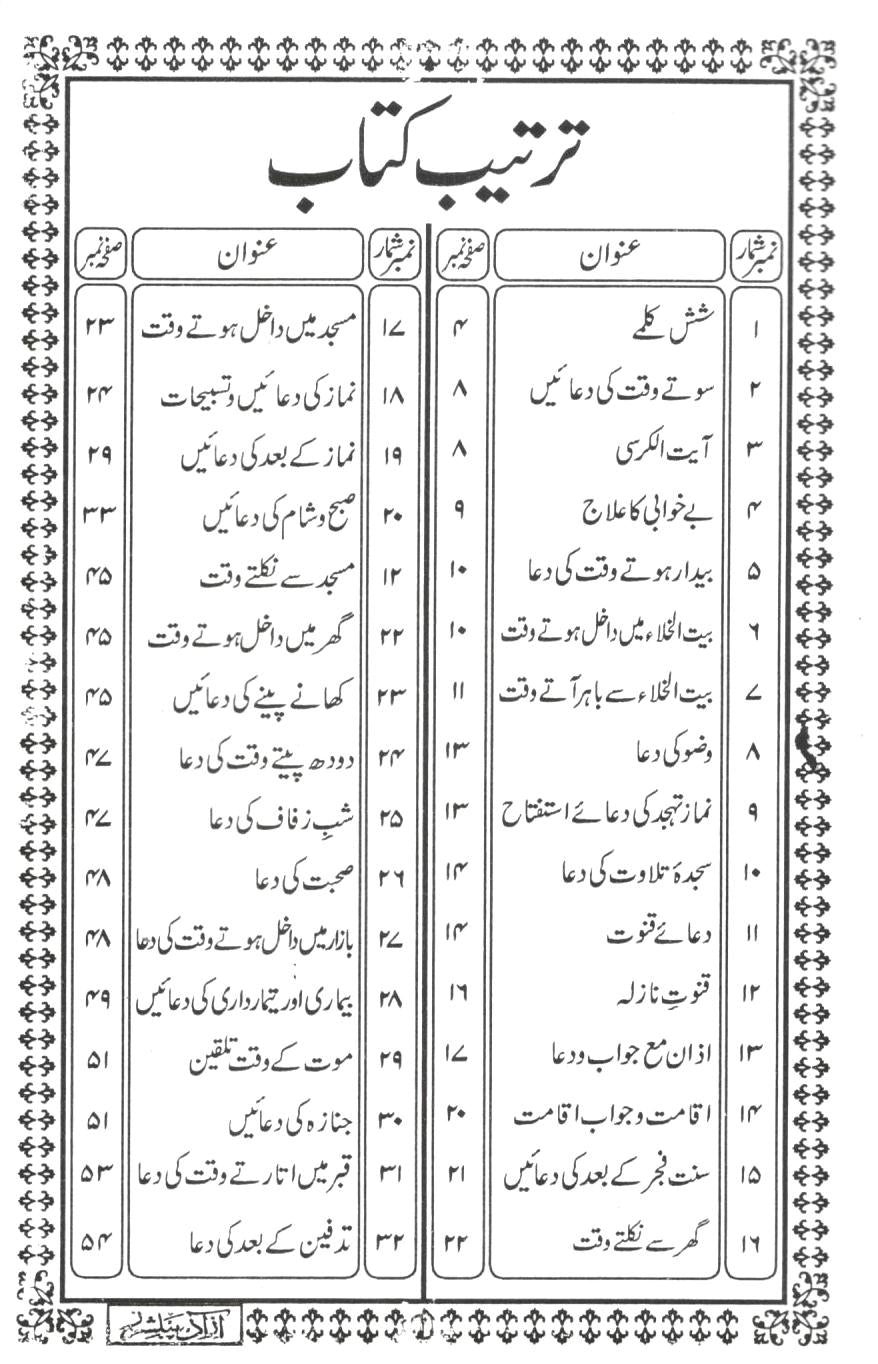 ترتیب کتاب
نمبر شمار عنوان صفحہ نمبر
۱ شش کلمے ۴
۲ سوتے وقت کی دعائیں ۸
۳ آیت الکرسی ۸
۴ بے خوابی کا علاج ۹
۵ بیدار ہوتے وقت کی دعا ۱۰
۶ بیت الخلاء میں داخل ہوتے وقت ۱۰
۷ بیت الخلاء سے باہر آتے وقت ۱۱
۸ وضو کی دعا ۱۳
۹ نماز تہجد کی دعائے استفتاح ۱۳
۱۰ سجدۂ تلاوت کی دعا ۱۴
۱۱ دعائے قنوت ۱۴
۱۲ قنوتِ نازلہ ۱۶
۱۳ اذان مع جواب و دعا ۱۷
۱۴ اقامت و جواب اقامت ۲۰
۱۵ سنت فجر کے بعد کی دعائیں ۲۱
۱۶ گھر سے نکلتے وقت ۲۲
نمبر شمار عنوان صفحہ نمبر
۱۷ مسجد میں داخل ہوتے وقت ۲۳
۱۸ نماز کی دعائیں و تسبیحات ۲۴
۱۹ نماز کے بعد کی دعائیں ۲۹
۲۰ صبح و شام کی دعائیں ۳۳
۱۲ مسجد سے نکلتے وقت ۴۵
۲۲ گھر میں داخل ہوتے وقت ۴۵
۲۳ کھانے پینے کی دعائیں ۴۵
۲۴ دودھ پیتے وقت کی دعا ۴۷
۲۵ شبِ زفاف کی دعا ۴۷
۲۶ صحبت کی دعا ۴۸
۲۷ بازار میں داخل ہوتے وقت کی دعا ۴۸
۲۸ بیماری اور تیمارداری کی دعائیں ۴۹
۲۹ موت کے وقت تلقین ۵۱
۳۰ جنازہ کی دعائیں ۵۱
۳۱ قبر میں اتارتے وقت کی دعا ۵۳
۳۲ تدفین کے بعد کی دعا ۵۴